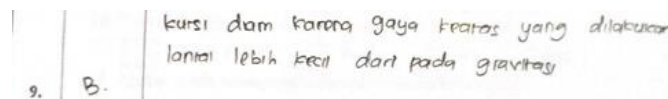 kursi diam karena gaya keatas yang dilakukan
lantai lebih kecil dari pada gravitasi
9. B.